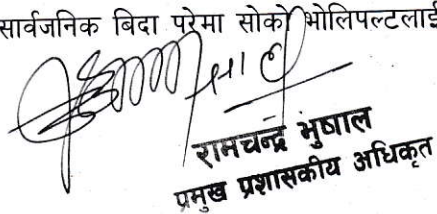 सार्वजनिक बिदा परेमा सोको भोलिपल्टलाई
रामचन्द्र भुषाल
प्रमुख प्रशासकीय अधिकृत